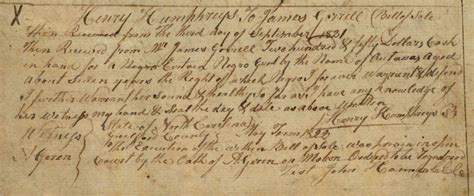 X Henry Humphreys To James Gorrell (Bill of Sale
Then Received from the third day of September 1821
Then Received from Mr James Gorrell Two hundred & fifty Dollars Cash
in hand for a Negro Negro Girl by the Name of aged
about years the Right of which Negro forever warrant & defend
I further Warrant her Sound & healthy so far as I have any knowledge of
her Witness my hand & Seal the day & date as above written
Henry Humphreys
Witness State of North Carolina
County May Term 1823
A Geren The Execution of the within Bill of Sale was proven in open
Court by the Oath of A Geren on Motion Ordered to be registered
Test John